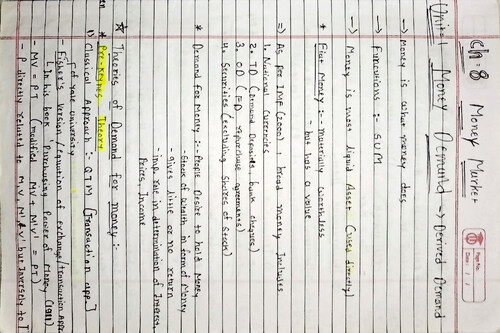 Ch: 8 Money Market
Page No.
Date
Unit: 1 Money Demand → Derived Demand
→ Money is what money does
→ Functions :- SUM
→ Money is most liquid Asset (Used directly)
* Fiat Money :- materially worthless
but has a value
⇒ As per IMF (2000) Broad money Includes
1. National Currencies
2. T.D (Demand Deposits, bank cheques)
3. O.D (F.D, repurchase agreements)
4. Securities (excluding Shares of stock)
* Demand for Money :- - People Desire to hold Money
- Store of wealth in form of Money
- gives little or no return
- Imp. role in determination of Interest,
Prices, Income
☆ Theories of Demand for money :-
* Pre-Keynes Theory
1) Classical Approach :- QTM [Transaction app.]
of Yale university
- Fisher's Version / equation of exchange / transaction App.
↳ In his book 'Purchasing Power of Money' (1911)
- MV = PT (modified MV + M'V' = PT)
- P directly related to M, V, M' & V' but Inversely to T